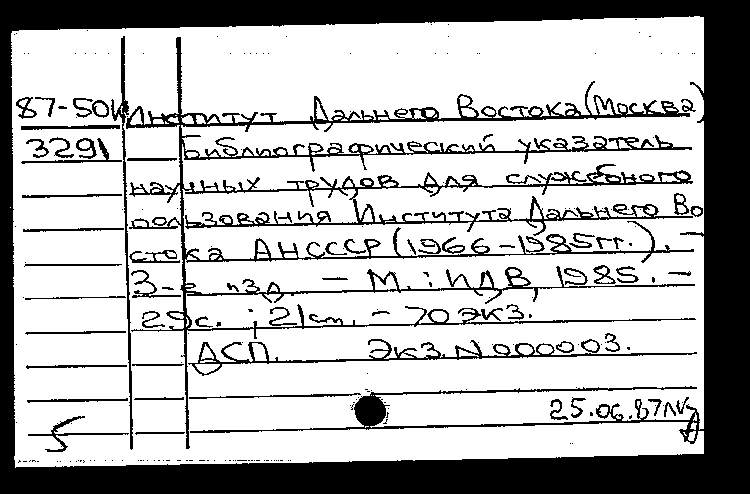 87-50И Институт Дальнего Востока (Москва)
3291 Библиографический указатель
научных трудов для служебного
пользования Института Дальнего Во
стока АНСССР (1966-1985гг.). -
3-е изд - М. : ИДВ, 1985. -
29с. ; 21см. - 70 экз.
ДСП. Экз. N 000003.
25.06.87
5